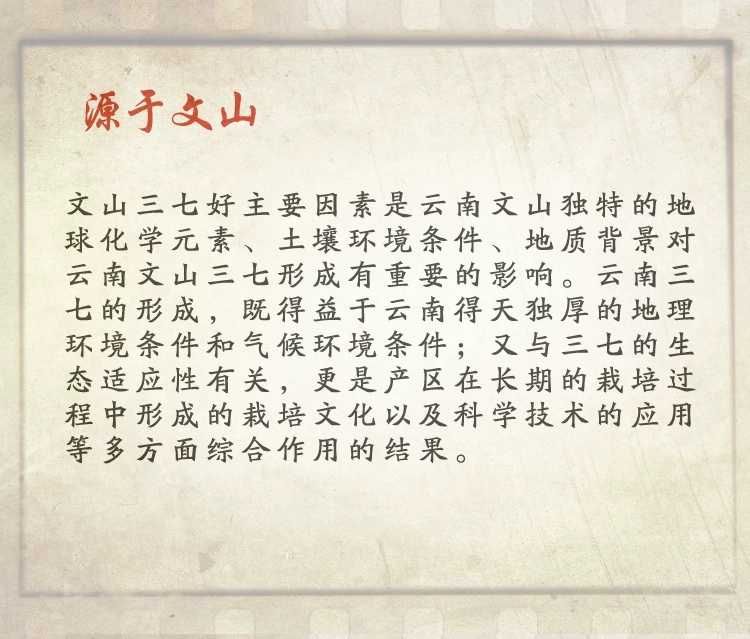 源于文山
文山三七好主要因素是云南文山独特的地
球化学元素、土壤环境条件、地质背景对
云南文山三七形成有重要的影响。云南三
七的形成，既得益于云南得天独厚的地理
环境条件和气候环境条件；又与三七的生
态适应性有关，更是产区在长期的栽培过
程中形成的栽培文化以及科学技术的应用
等多方面综合作用的结果。